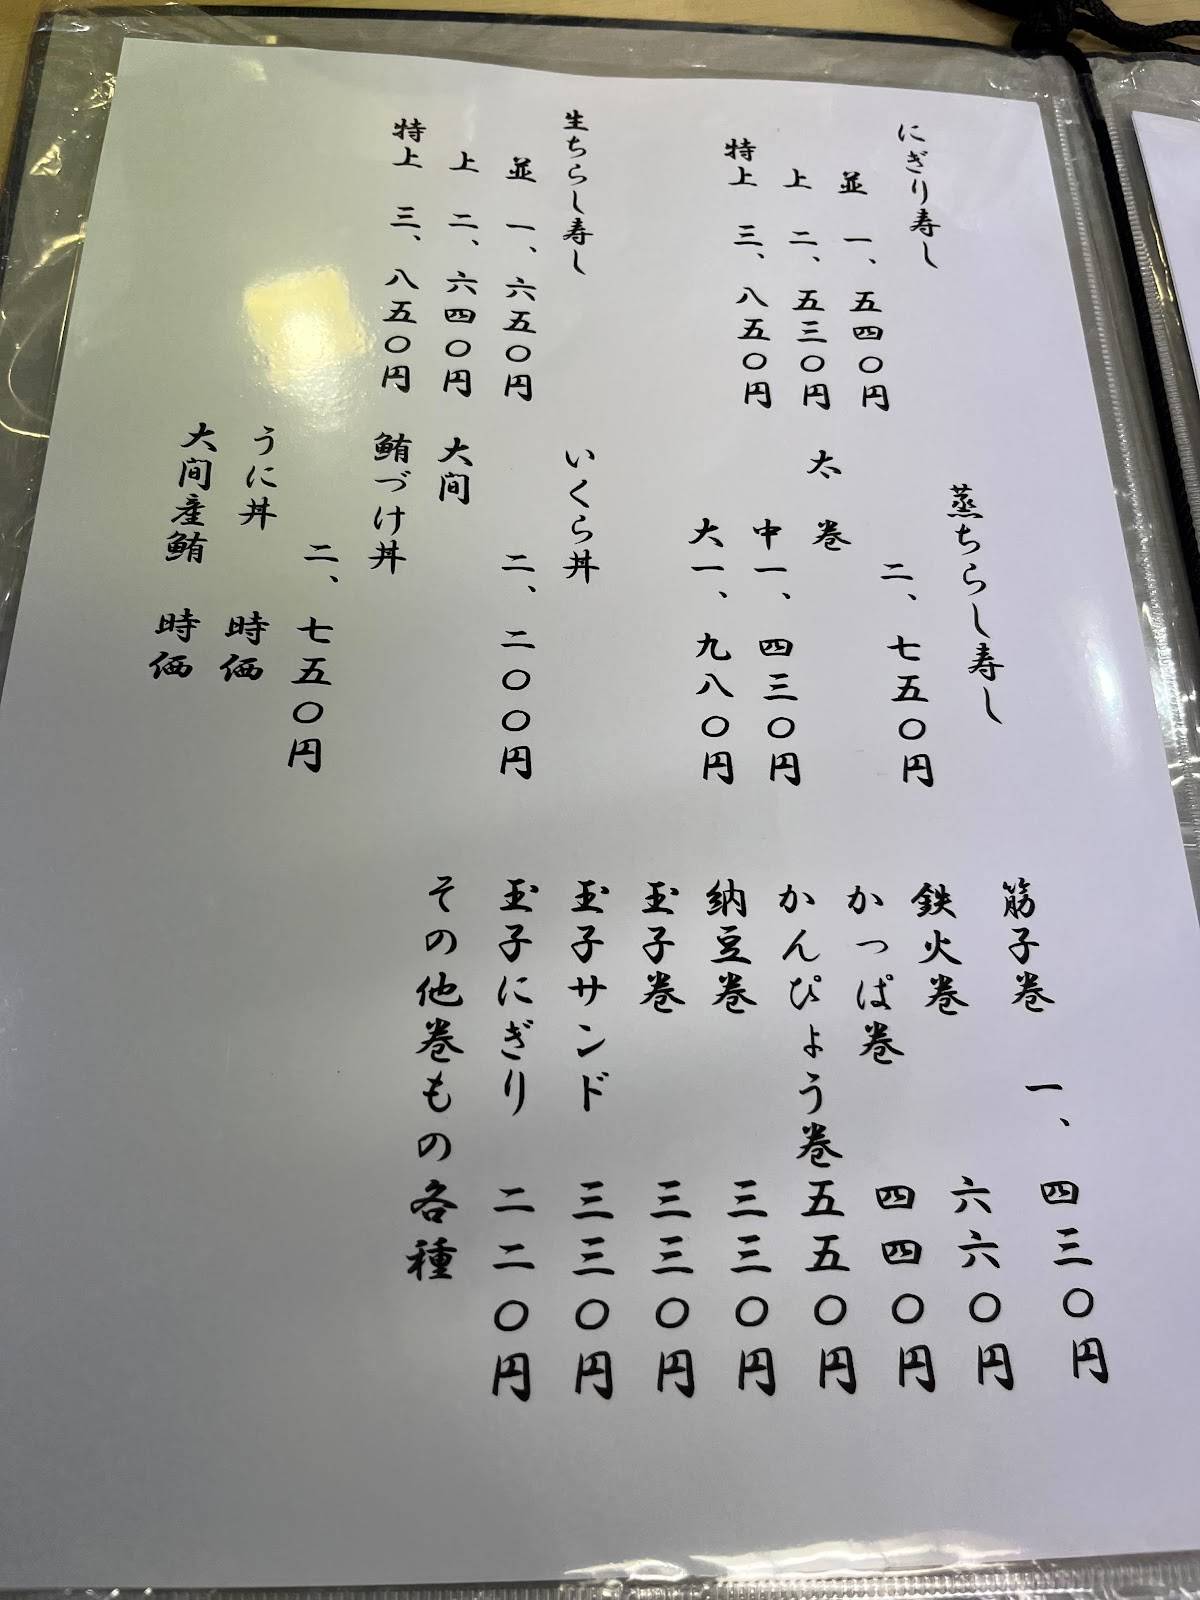 にぎり寿し
並 一、五四〇円
上 二、五三〇円
特上 三、八五〇円
生ちらし寿し
並 一、六五〇円
上 二、六四〇円
特上 三、八五〇円
蒸ちらし寿し
二、七五〇円
太巻
中一、四三〇円
大一、九八〇円
いくら丼
二、二〇〇円
大間
鮪づけ丼
二、七五〇円
うに丼 時価
大間産鮪 時価
筋子巻 一、四三〇円
鉄火巻 六六〇円
かっぱ巻 四四〇円
かんぴょう巻 五五〇円
納豆巻 三三〇円
玉子巻 三三〇円
玉子サンド 三三〇円
玉子にぎり 二二〇円
その他巻もの各種